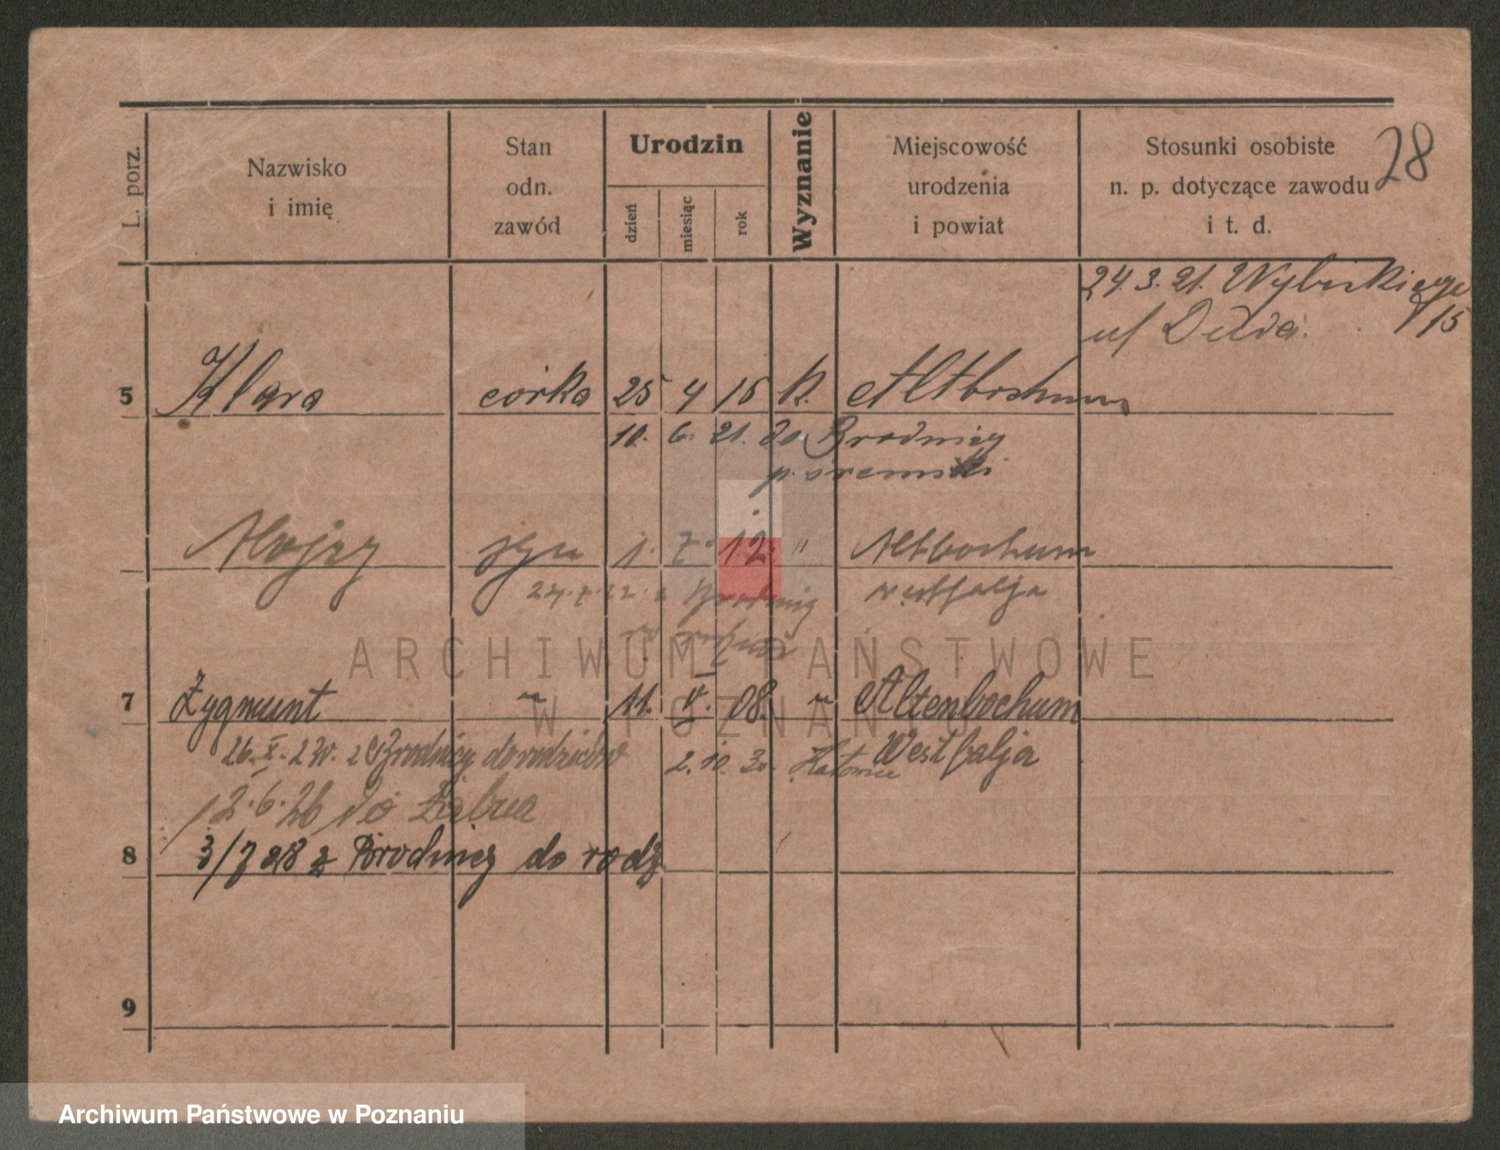 L. porz.
Nazwisko i imię
Stan odn. zawód
Urodzin
dzień miesiąc rok
Wyznanie
Miejscowość urodzenia i powiat
Stosunki osobiste n. p. dotyczące zawodu i t. d.
28
24.3.21. Wybickiego 15
ul Duda
5 Klara córka 25 4 15 k. Altbochum
10. 6. 21. do Brodnicy
p. sremski
Alojzy syn 1. 7. 12. " Altbochum
z Brodnicy westfalja
7 Zygmunt " 11. V. 08. " Altenbochum
26. X. z Brodnicy do rodziców 2. 10. 30. Katowice Westfalja
12.6.26 do
8 3/7 28 z Brodnicy do rodz
9
ARCHIWUM PAŃSTWOWE
W POZNANIU
Archiwum Państwowe w Poznaniu